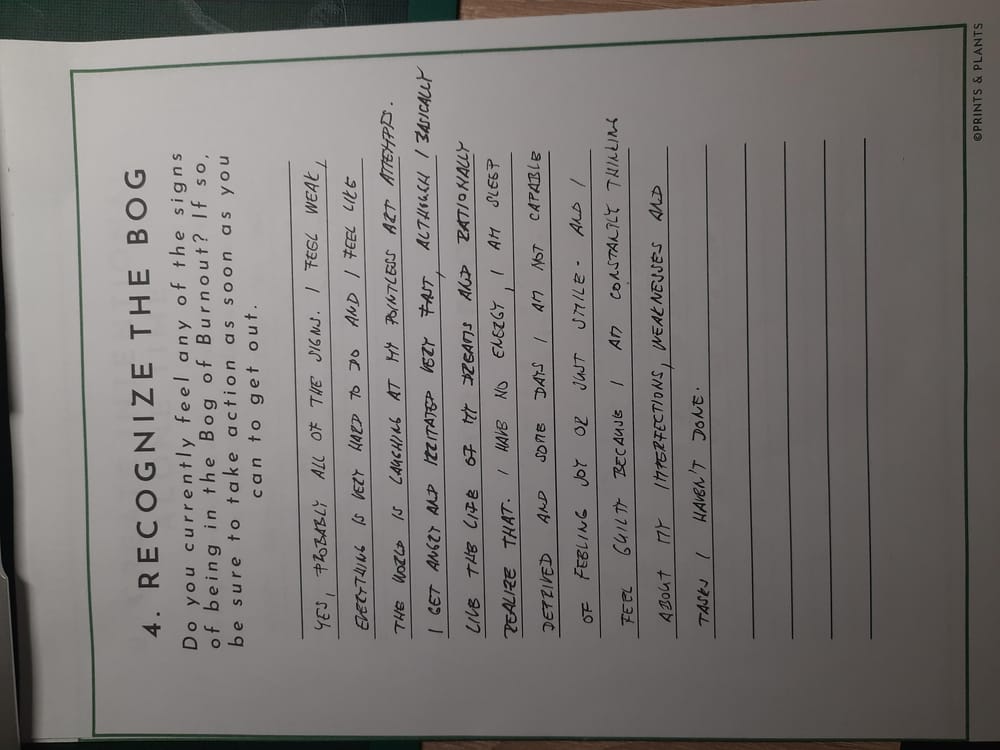 4. RECOGNIZE THE BOG
Do you currently feel any of the signs
of being in the Bog of Burnout? If so,
be sure to take action as soon as you
can to get out.
YES, PROBABLY ALL OF THE SIGNS. I FEEL WEAK,
EVERYTHING IS VERY HARD TO DO AND I FEEL LIKE
THE WORLD IS LAUGHING AT MY POINTLESS ART ATTEMPTS.
I GET ANGRY AND IRRITATED VERY FAST, ALTHOUGH I BASICALLY
LIVE THE LIFE OF MY DREAMS AND RATIONALLY
REALIZE THAT. I HAVE NO ENERGY, I AM SLEEP
DEPRIVED AND SOME DAYS I AM NOT CAPABLE
OF FEELING JOY OR JUST SMILE. AND I
FEEL GUILTY BECAUSE I AM CONSTANTLY THINKING
ABOUT MY IMPERFECTIONS, WEAKNESSES AND
TASKS I HAVEN'T DONE.
©PRINTS & PLANTS